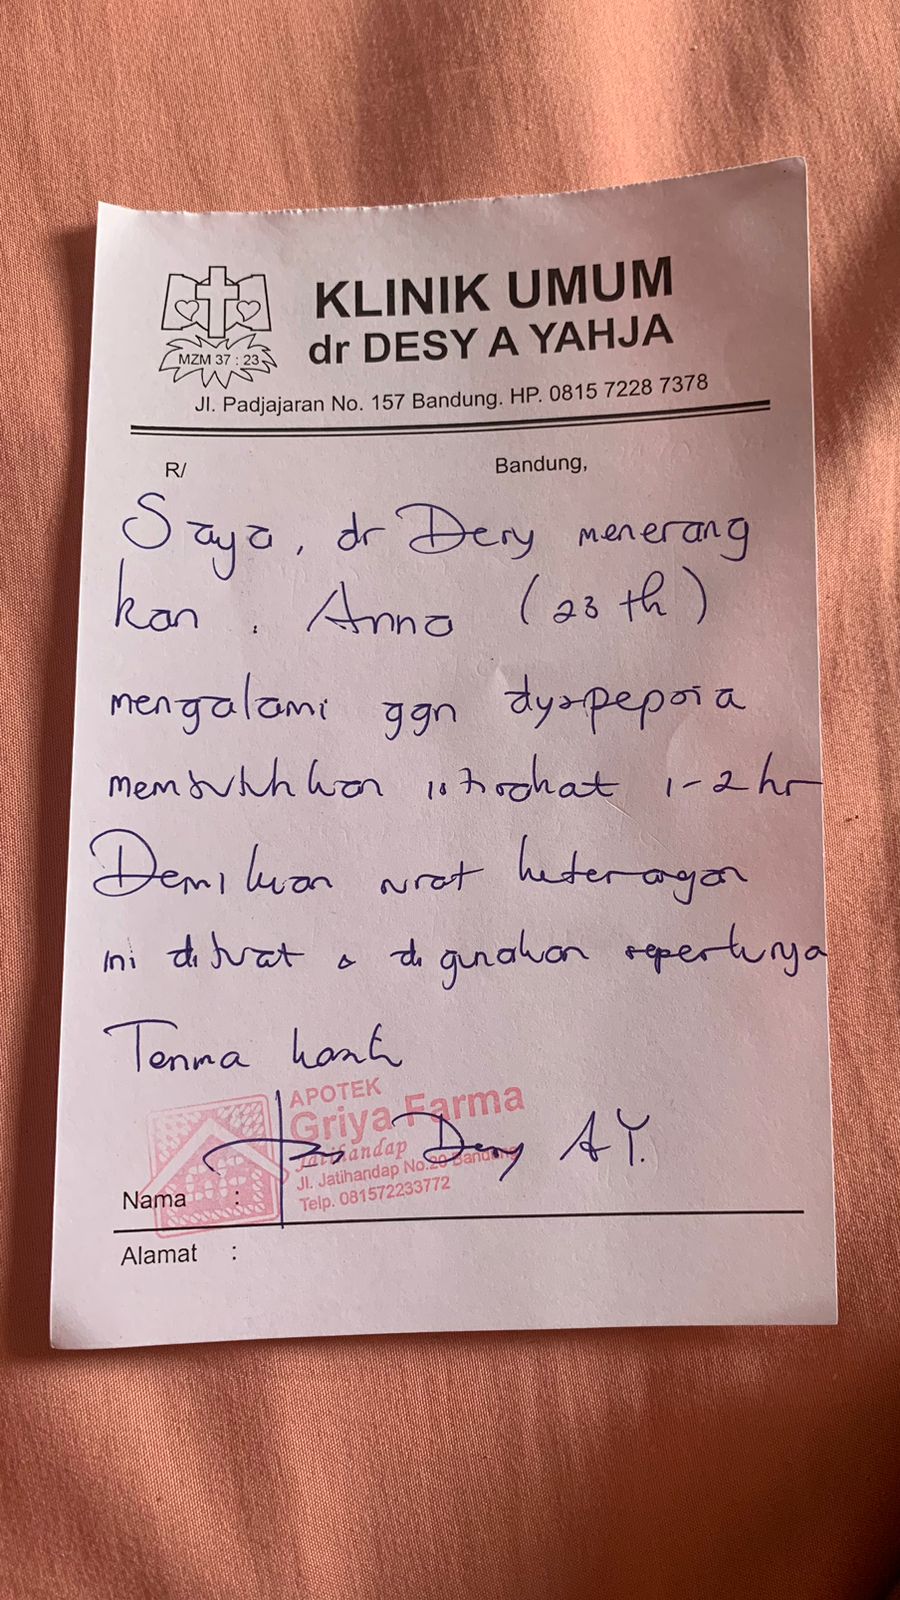 KLINIK UMUM
dr DESY A YAHJA
MZM 37 : 23
Jl. Padjajaran No. 157 Bandung. HP. 0815 7228 7378
R/
Bandung,
Saya, dr Desy menerang
kan . Anna (23 th)
mengalami ggn dyspepsia
membutuhkan istirahat 1-2 hr
Demikian surat keterangan
ini dibuat & digunakan seperlunya
Terima kasih
APOTEK
Griya Farma
Jatihandap
Jl. Jatihandap No.20 Bandung
Telp. 081572233772
Desy AY.
Nama :
Alamat :